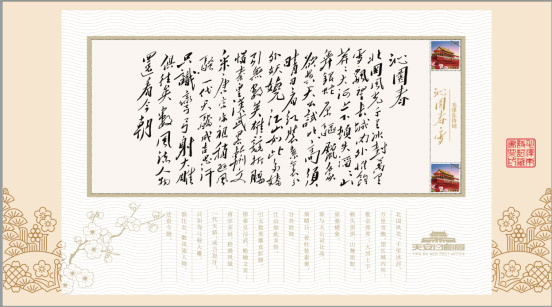 沁園春
北國風光千里冰封萬里
雪飄望長城内外惟餘
莽莽大河上下頓失滔滔山
舞銀蛇原驅臘象
欲與天公試比高須
晴日看紅裝素裹分
外妖嬈江山如此多嬌
引無數英雄競折腰
惜秦皇漢武略輸文
采唐宗宋祖稍遜風
騷一代天驕成吉思汗
只識彎弓射大雕
俱往矣數風流人物
還看今朝
沁园春雪
北国风光，千里冰封，
万里雪飘。望长城内外，
惟余莽莽；大河上下，
顿失滔滔。山舞银蛇，
原驰蜡象，
欲与天公试比高。
须晴日，看红装素裹，
分外妖娆。
江山如此多娇，
引无数英雄竞折腰。
惜秦皇汉武，略输文采；
唐宗宋祖，稍逊风骚。
一代天骄，成吉思汗，
只识弯弓射大雕。
俱往矣，数风流人物，
还看今朝。
天安门邮局
TIAN AN MEN POST OFFICE